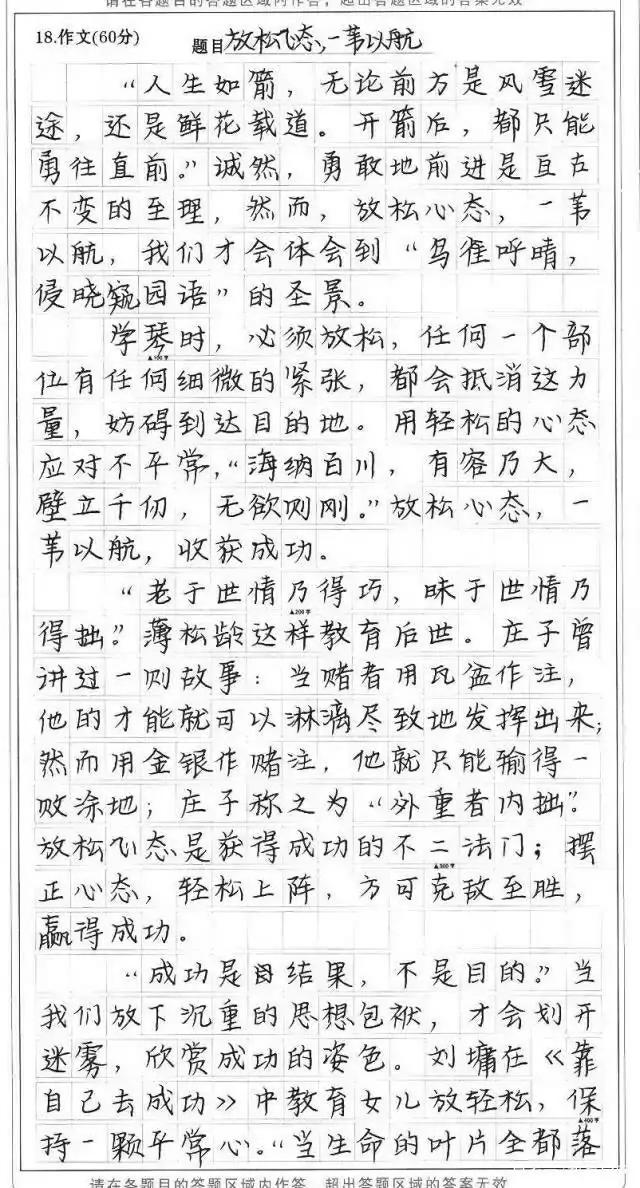 请在各题目的答题区域内作答，超出答题区域的答案无效
18.作文(60分) 题目 放松心态,一苇以航
“人生如箭，无论前方是风雪迷
途，还是鲜花载道。开箭后，都只能
勇往直前。”诚然，勇敢地前进是亘古
不变的至理，然而，放松心态，一苇
以航，我们才会体会到“鸟雀呼晴，
侵晓窥园语”的圣景。
学琴时，必须放松，任何一个部
▲100字
位有任何细微的紧张，都会抵消这力
量，妨碍到达目的地。用轻松的心态
应对不平常，“海纳百川，有容乃大，
壁立千仞，无欲则刚。”放松心态，一
苇以航，收获成功。
“老于世情乃得巧，昧于世情乃
▲200字
得拙”。薄松龄这样教育后世。庄子曾
讲过一则故事：当赌者用瓦盆作注，
他的才能就可以淋漓尽致地发挥出来；
然而用金银作赌注，他就只能输得一
败涂地；庄子称之为“外重者内拙”。
放松心态是获得成功的不二法门；摆
▲300字
正心态，轻松上阵，方可克敌至胜，
赢得成功。
“成功是结果，不是目的。”当
我们放下沉重的思想包袱，才会划开
迷雾，欣赏成功的姿色。刘墉在《靠
自己去成功》中教育女儿放轻松，保
▲400字
持一颗平常心。“当生命的叶片全都落
请在各题目的答题区域内作答，超出答题区域的答案无效